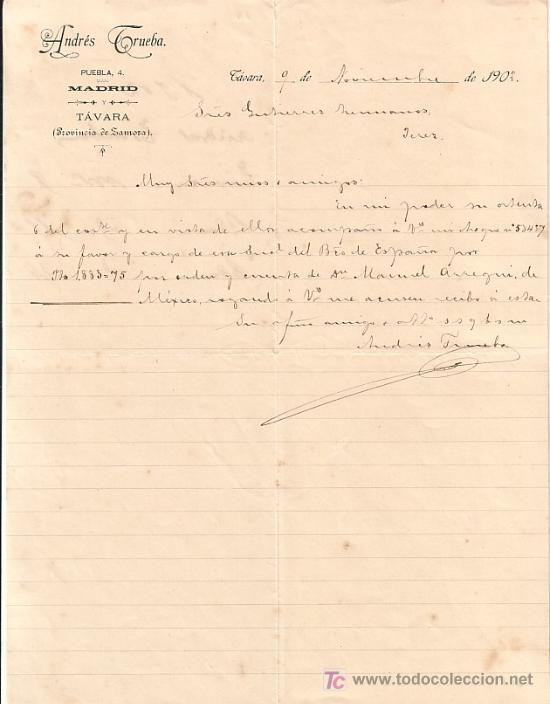 Andrés Trueba.
PUEBLA, 4.
MADRID
Y
TÁVARA
(Provincia de Zamora).
Távara, 9 de Noviembre de 1902
Sres Gutierres hermanos,
Jerez
Muy Sres mios y amigos:
En mi poder su
6 del corrte y en vista de ella acompaño á Vs mi cheque nº
á su favor y cargo de esa Suc.l del Bco de España por
1.883=75 por orden y cuenta de Dn Manuel Arregui, de
México, rogando á Vs me acusen recibo á esta
Su afmo amigo s s q b s m
Andrés Trueba
TC www.todocoleccion.net